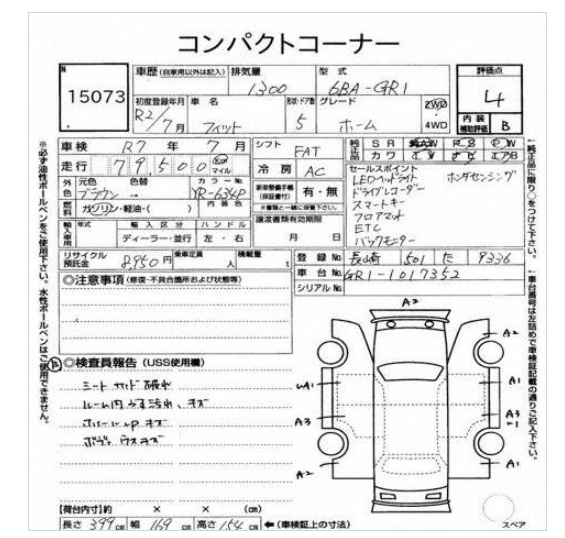 コンパクトコーナー
15073
車歴 (自家用以外は記入) 排気量 型 式 評価点
1300 6BA-GR1 4
初度登録年月 車 名 形状・ドア数 グレード 2WD
R2/7月 フィット 5 ホーム 4WD 内 装 補助評価 B
車 検 R7 年 7 月 シフト FAT 純正品 S R P W
走 行 79,500 km マイル 冷 房 AC カワ
外色 元色 色替 カラーNo. セールスポイント
ブラウン → YR-634P 新車整備手帳 (保証書付) 有・無 LEDヘッドライト ホンダセンシング
燃料 ガソリン・軽油・( ) 内 装 色 ドライブレコーダー
スマートキー
輸入車用 年式 輸 入 区 分 ハ ン ド ル 譲渡書類有効期限 フロアマット
ディーラー・並行 左 ・ 右 月 日 ETC
バックモニター
リサイクル預託金 8,950円 乗車定員 人 積載量 t 登 録 No. 長崎 501 た 9336
◎注意事項 (修復・不具合箇所および状態等) 車 台 No. GR1-1017352
シリアル No.
A2
A2
◎検査員報告 (USS使用欄)
シートサイド破れ
ルーム内うす汚れ、キズ
A1
A1
A3
A3
A2
A1
【荷台内寸】約 × × (cm)
長さ 399 cm 幅 169 cm 高さ 154 cm ←(車検証上の寸法) スペア
※必ず油性ボールペンをご使用下さい。水性ボールペンはご使用できません。
↑純正品に限り○をつけて下さい。
↑車台番号は左詰めで車検証記載の通りご記入下さい。